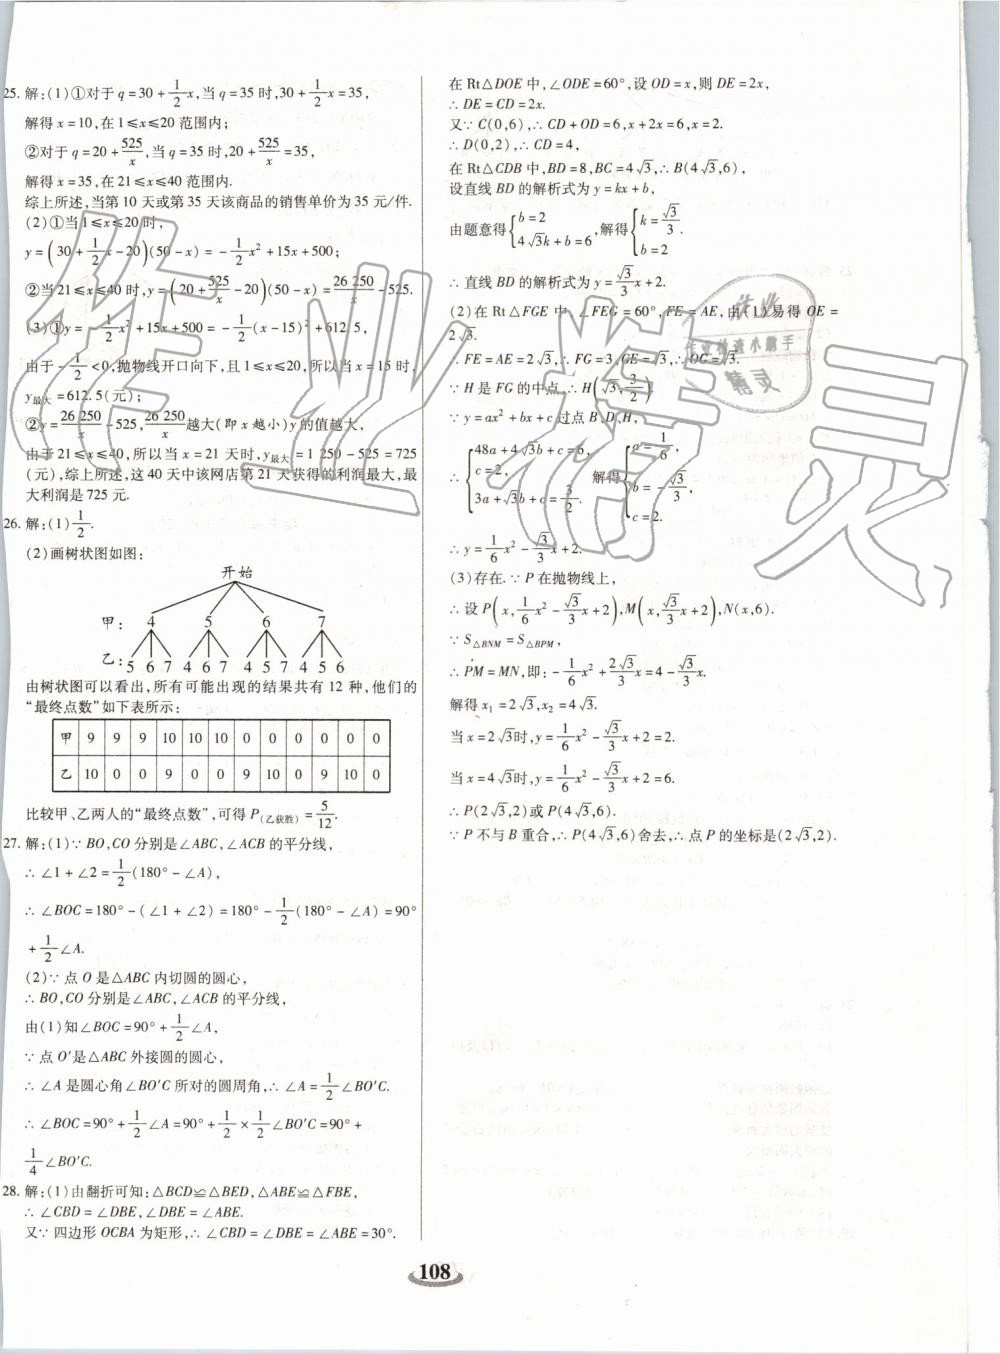 25. 解:(1)①对于 q=30+1/2x,当 q=35 时,30+1/2x=35,
解得 x=10,在 1≤x≤20 范围内;
②对于 q=20+525/x,当 q=35 时,20+525/x=35,
解得 x=35,在 21≤x≤40 范围内.
综上所述,当第 10 天或第 35 天该商品的销售单价为 35 元/件.
(2)①当 1≤x≤20 时,
y=(30+1/2x-20)(50-x)=-1/2x²+15x+500;
②当 21≤x≤40 时,y=(20+525/x-20)(50-x)=26 250/x-525.
(3)①y=-1/2x²+15x+500=-1/2(x-15)²+612.5,
由于-1/2<0,抛物线开口向下,且 1≤x≤20,所以当 x=15 时,
y最大=612.5(元);
②y=26 250/x-525,26 250/x越大(即 x 越小)y 的值越大,
由于 21≤x≤40,所以当 x=21 天时,y最大=1 250-525=725
(元),综上所述,这 40 天中该网店第 21 天获得的利润最大,最
大利润是 725 元.
26. 解:(1)1/2.
(2)画树状图如图:
开始
甲: 4 5 6 7
乙: 5 6 7 4 6 7 4 5 7 4 5 6
由树状图可以看出,所有可能出现的结果共有 12 种,他们的
“最终点数”如下表所示:
甲 9 9 9 10 10 10 0 0 0 0 0 0
乙 10 0 0 9 0 0 9 10 0 9 10 0
比较甲、乙两人的“最终点数”,可得 P(乙获胜)=5/12.
27. 解:(1)∵BO,CO 分别是∠ABC,∠ACB 的平分线,
∴∠1+∠2=1/2(180°-∠A),
∴∠BOC=180°-(∠1+∠2)=180°-1/2(180°-∠A)=90°
+1/2∠A.
(2)∵点 O 是△ABC 内切圆的圆心,
∴BO,CO 分别是∠ABC,∠ACB 的平分线,
由(1)知∠BOC=90°+1/2∠A,
∵点 O'是△ABC 外接圆的圆心,
∴∠A 是圆心角∠BO'C 所对的圆周角,∴∠A=1/2∠BO'C.
∴∠BOC=90°+1/2∠A=90°+1/2×1/2∠BO'C=90°+
1/4∠BO'C.
28. 解:(1)由翻折可知:△BCD≌△BED,△ABE≌△FBE,
∴∠CBD=∠DBE,∠DBE=∠ABE.
又∵四边形 OCBA 为矩形,∴∠CBD=∠DBE=∠ABE=30°.
在 Rt△DOE 中,∠ODE=60°,设 OD=x,则 DE=2x,
∴DE=CD=2x.
又∵C(0,6),∴CD+OD=6,x+2x=6,x=2.
∴D(0,2),∴CD=4,
在 Rt△CDB 中,BD=8,BC=4√3,∴B(4√3,6),
设直线 BD 的解析式为 y=kx+b,
由题意得{b=2 4√3k+b=6,解得{k=√3/3 b=2.
∴直线 BD 的解析式为 y=√3/3x+2.
(2)在 Rt△FGE 中,∠FEG=60°,FE=AE,由(1)易得 OE=
2√3.
∴FE=AE=2√3,∴FG=3,GE=√3,∴OG=√3.
∵H 是 FG 的中点,∴H(√3,3/2)
∵y=ax²+bx+c 过点 B、D、H,
∴{48a+4√3b+c=6, c=2, 3a+√3b+c=3/2. 解得{a=1/6, b=-√3/3, c=2.
∴y=1/6x²-√3/3x+2.
(3)存在.∵P 在抛物线上,
∴设 P(x,1/6x²-√3/3x+2),M(x,√3/3x+2),N(x,6).
∵S△BNM=S△BPM,
∴PM=MN,即:-1/6x²+2√3/3x=4-√3/3x.
解得 x₁=2√3,x₂=4√3.
当 x=2√3时,y=1/6x²-√3/3x+2=2.
当 x=4√3时,y=1/6x²-√3/3x+2=6.
∴P(2√3,2)或 P(4√3,6).
∵P 不与 B 重合,∴P(4√3,6)舍去,∴点 P 的坐标是(2√3,2).
108
作业精灵
作业
作业检查小助手
精灵